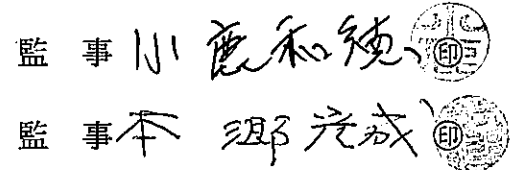 監 事 小鹿和穂 印
監 事 本郷孝成 印